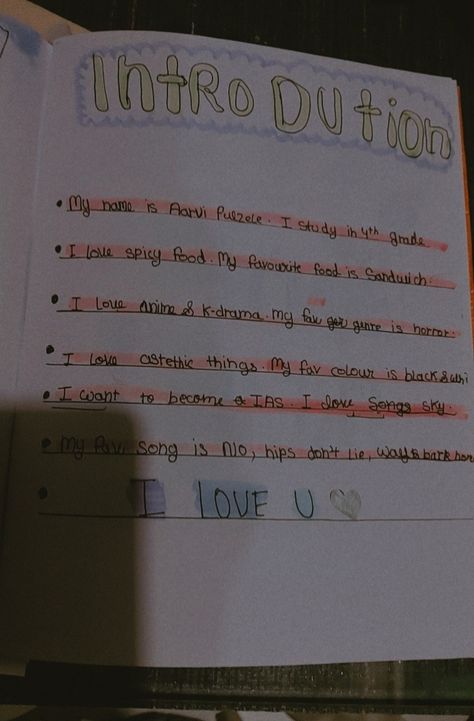 IntRoDUtion
• My name is Aarvi Pulzele. I study in 4th grade.
• I love spicy food. My favourite food is Sandwich.
• I love anime & K-drama. My fav genre is horror.
• I love astethic things. My fav colour is black &
• I want to become a IAS. I love Songs sky.
• My fav. song is NO, hips don't lie, way back hom
• I LOVE U ♡